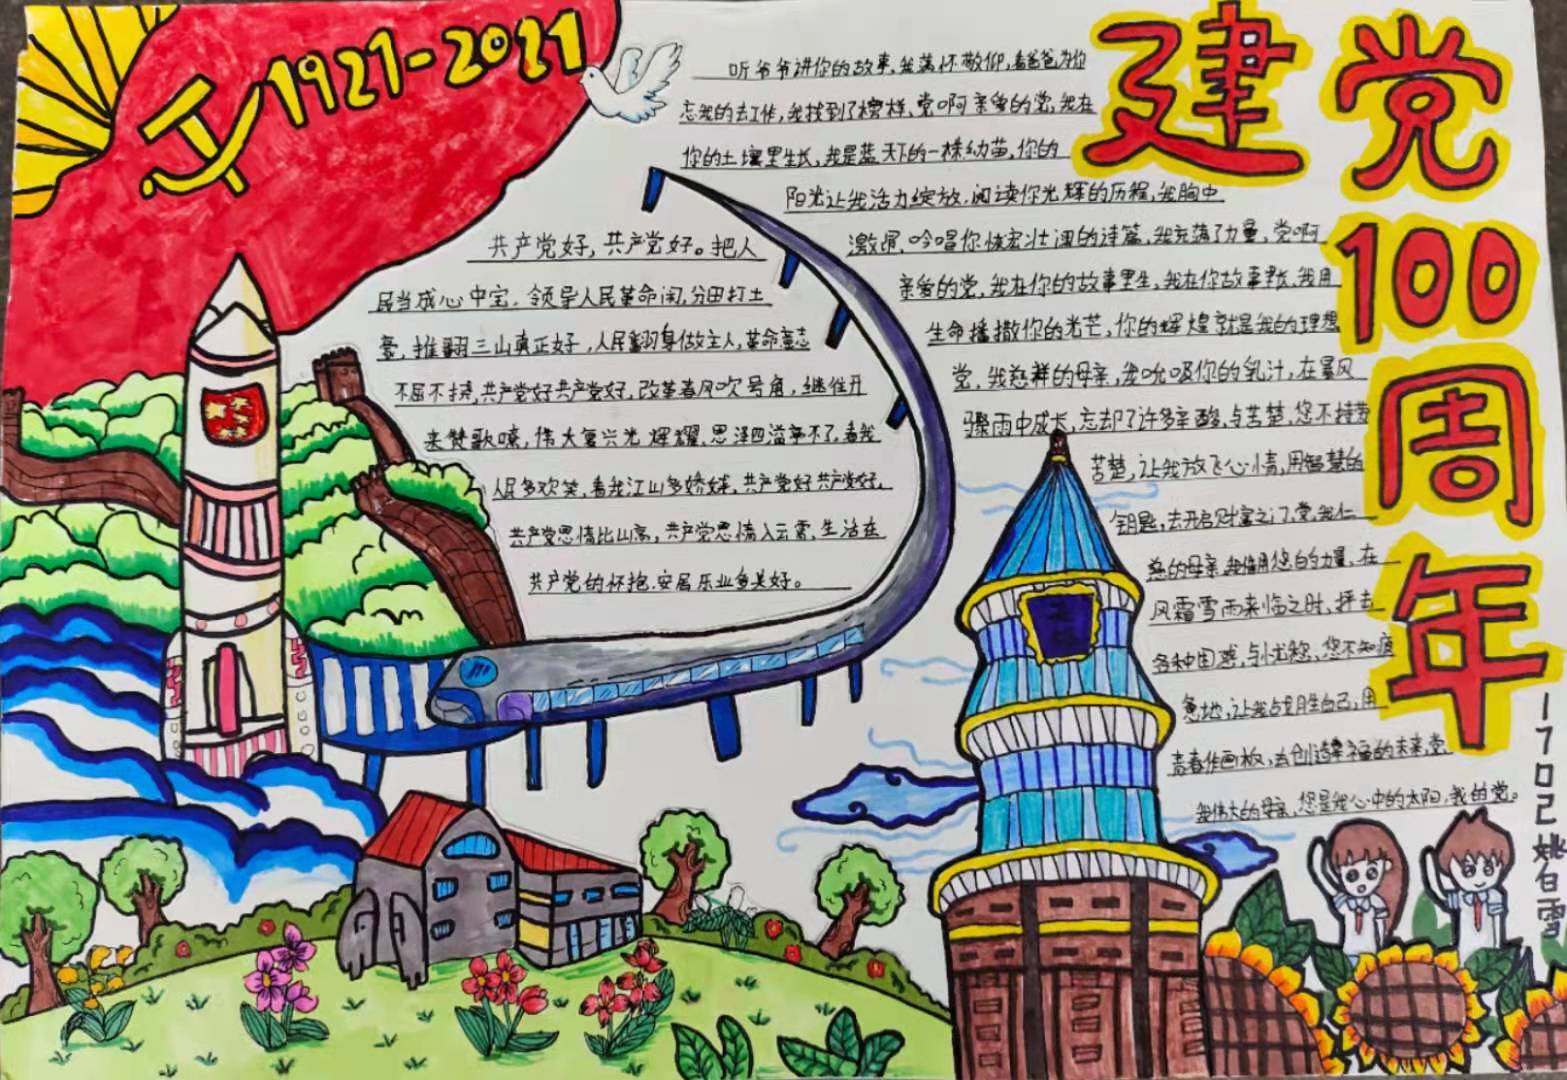 1921-2021
建党100周年
听爷爷讲你的故事,我满怀敬仰,看爸爸为你
忘我的去工作,我找到了榜样,党啊亲爱的党,我在
你的土壤里生长,我是蓝天下的一棵幼苗,你的
阳光让我活力绽放,阅读你光辉的历程,我胸中
激昂,吟唱你恢宏壮阔的诗篇,我充满了力量,党啊
亲爱的党,我在你的故事里生,我在你故事里长,我用
生命播撒你的光芒,你的辉煌就是我的理想
党,我慈祥的母亲,我吮吸你的乳汁,在暴风
骤雨中成长,忘却了许多辛酸,与苦楚,您不持
苦楚,让我放飞心情,用智慧的
钥匙,去开启财富之门,党,我仁
慈的母亲,我借用您的力量,在
风霜雪雨来临之时,抨去
各种困惑,与忧愁,您不知疲
惫地,让我战胜自己,用
青春作画板,去创造幸福的未来,党,
我伟大的母亲,您是我心中的太阳,我的党。
共产党好,共产党好。把人
民当成心中宝,领导人民革命闹,分田打土
豪,推翻三山真正好,人民翻身做主人,革命意志
不屈不挠,共产党好共产党好,改革春风吹号角,继往开
来赞歌嘹,伟大复兴光辉耀,恩泽四溢享不了,看我
人民多欢笑,看我江山多娇娆,共产党好共产党好,
共产党恩情比山高,共产党恩情入云霄,生活在
共产党的怀抱,安居乐业多美好。
1702姚白雪